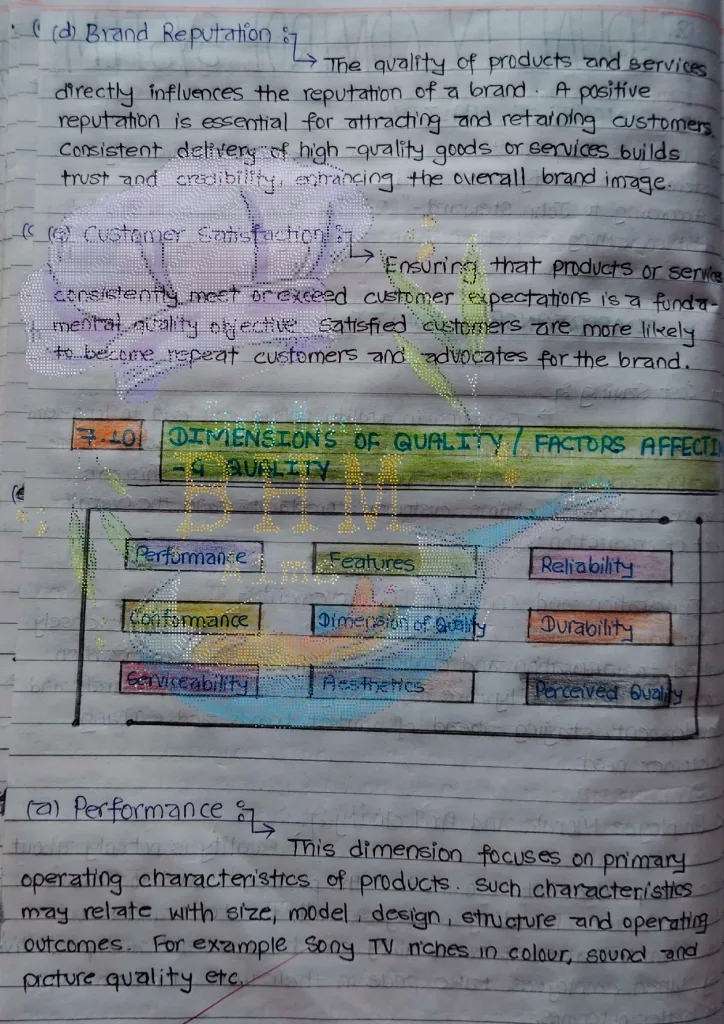 (d) Brand Reputation :-
↳ The quality of products and services
directly influences the reputation of a brand. A positive
reputation is essential for attracting and retaining customers.
Consistent delivery of high-quality goods or services builds
trust and credibility, enhancing the overall brand image.
(e) Customer Satisfaction :-
↳ Ensuring that products or service
consistently meet or exceed customer expectations is a funda-
mental quality objective. Satisfied customers are more likely
to become repeat customers and advocates for the brand.
7.10 DIMENSIONS OF QUALITY / FACTORS AFFECTIN
-G QUALITY
BHM
Performance Features Reliability
Conformance Dimension of Quality Durability
Serviceability Aesthetics Perceived Quality
(a) Performance :-
↳ This dimension focuses on primary
operating characteristics of products. Such characteristics
may relate with size, model, design, structure and operating
outcomes. For example Sony TV riches in colour, sound and
picture quality etc.